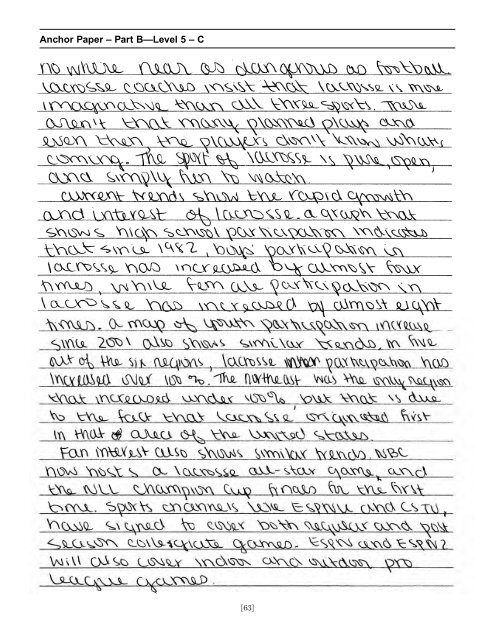 Anchor Paper – Part B—Level 5 – C
no where near as dangerous as football.
Lacrosse coaches insist that lacrosse is more
imaginative than all three sports. There
aren't that many planned plays and
even then, the players don't know what's
coming. The sport of lacrosse is pure, open,
and simply fun to watch.
Current trends show the rapid growth
and interest of lacrosse. a graph that
shows high school participation indicates
that since 1982, boys' participation in
lacrosse has increased by almost four
times, while female participation in
lacrosse has increased by almost eight
times. a map of youth participation increase
since 2001 also shows similar trends. In five
out of the six regions, lacrosse participation has
increased over 100%. The northeast was the only region
that increased under 100% but that is due
to the fact that lacrosse originated first
in that area of the United States.
Fan interest also shows similar trends. NBC
now hosts a lacrosse all-star game, and
the NLL Champion Cup finals for the first
time. Sports channels like ESPNU and CSTV,
have signed to cover both regular and post
season collegiate games. ESPN and ESPN2
will also cover indoor and outdoor pro
league games.
[63]